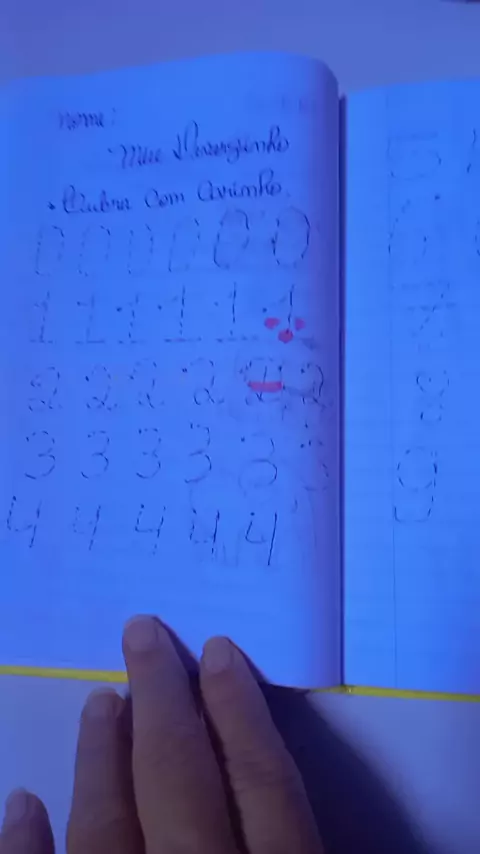 nome:
Meu Deverzinho
• Cubra com carinho.
0 0 0 0 0 0
1 1 1 1 1 1
2 2 2 2 2 2
3 3 3 3 3 3
4 4 4 4 4